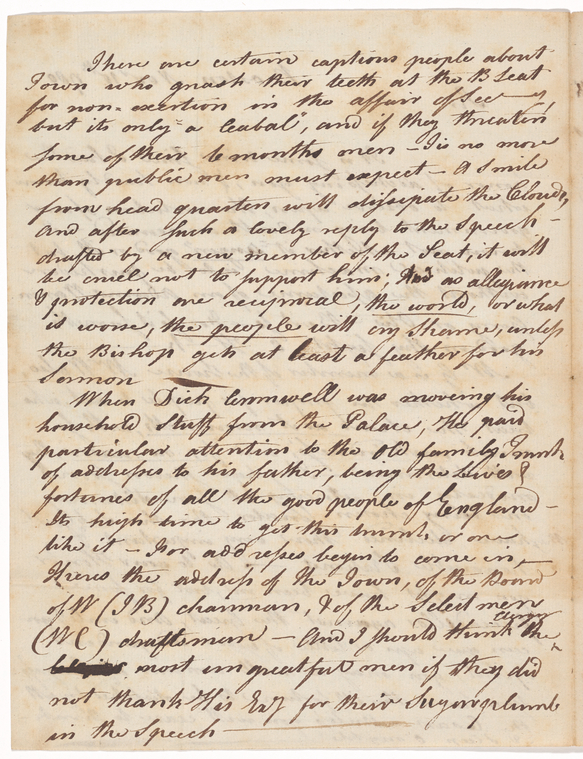 There are certain captious people about
Town who gnash their teeth at the B Seat
for non-exertion in the affair of Sec—y,
but its only "a Cabal", and if they threaten
some of their 6 months men – Tis no more
than public men must expect – A Smile
from head quarters will dissipate the Clouds,
And after such a lovely reply to the Speech –
drafted by a new member of the Seat, it will
be cruel not to support him; And as allegiance
& protection are reciprocal, the world, or what
is worse, the people will cry Shame, unless
the Bishop gets at least a feather for his
Sermon
When Dick Cromwell was moving his
household Stuff from the Palace, He paid
particular attention to the Old family Trunk
of addresses to his father, being the Lives &
fortunes of all the good people of England –
Its high time to get this trunk, or one
like it – For addresses begin to come in,
Heres the address of the Town, of the Board
of W (IB) chairman, & of the Select men
(WC) draftsman – And I should think the
clergy
most ungreatful men if they did
not thank His Exy for their Sugar plumb
in the Speech